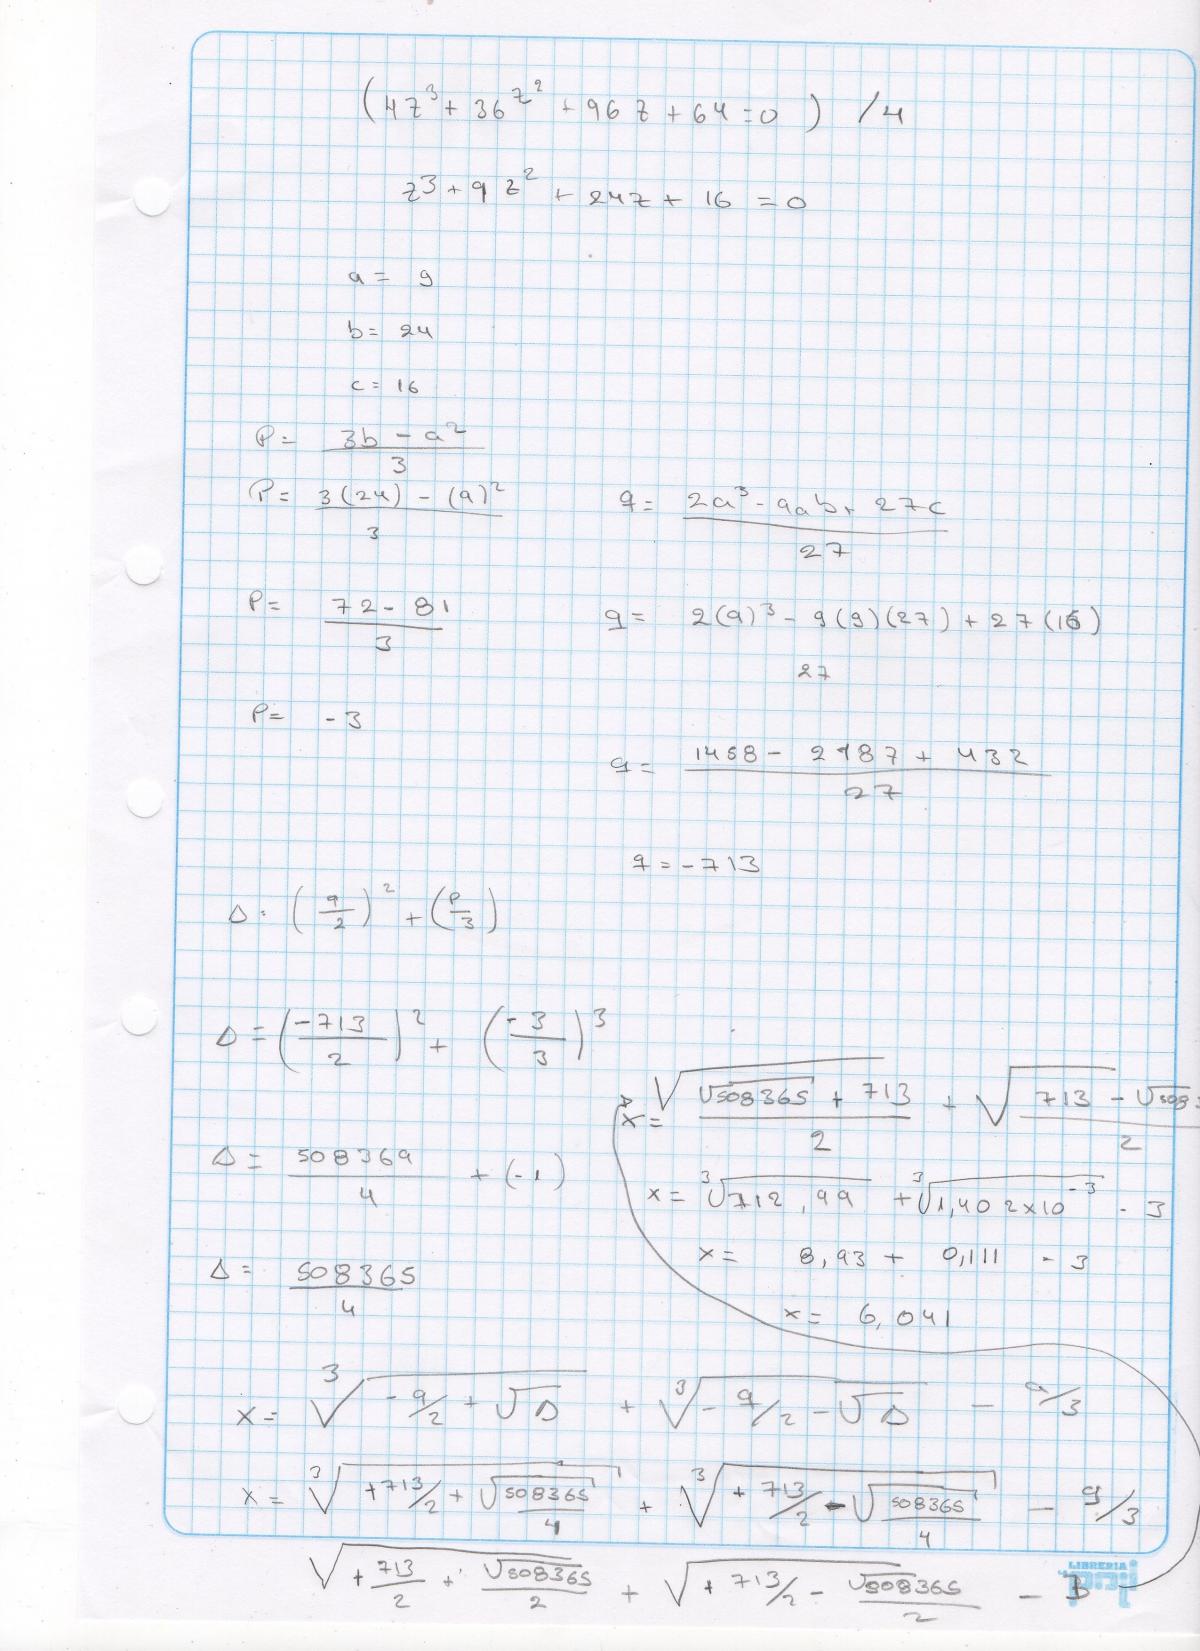 (4z³ + 36z² + 96z + 64 = 0) /4
z³ + 9z² + 24z + 16 = 0
a = 9
b = 24
c = 16
P = (3b - a²)/3
P = (3(24) - (9)²)/3
q = (2a³ - 9ab + 27c)/27
P = (72 - 81)/3
q = 2(9)³ - 9(9)(27) + 27(16)
27
P = -3
q = (1458 - 2187 + 432)/27
q = -713
Δ = (q/2)² + (P/3)
Δ = (-713/2)² + (-3/3)³
x = √((√508365 + 713)/2) + √((713 - √508
2
Δ = 508369/4 + (-1)
x = ³√712,99 + ³√1,402x10⁻³ - 3
x = 8,93 + 0,111 - 3
Δ = 508365/4
x = 6,041
x = ³√(-q/2 + √Δ) + ³√(-q/2 - √Δ) - a/3
x = ³√(+713/2 + √(508365/4)) + ³√(+713/2 - √(508365/4)) - 9/3
√(+713/2 + √508365/2) + √(+713/2 - √508365/2) - 3
LIBRERIA